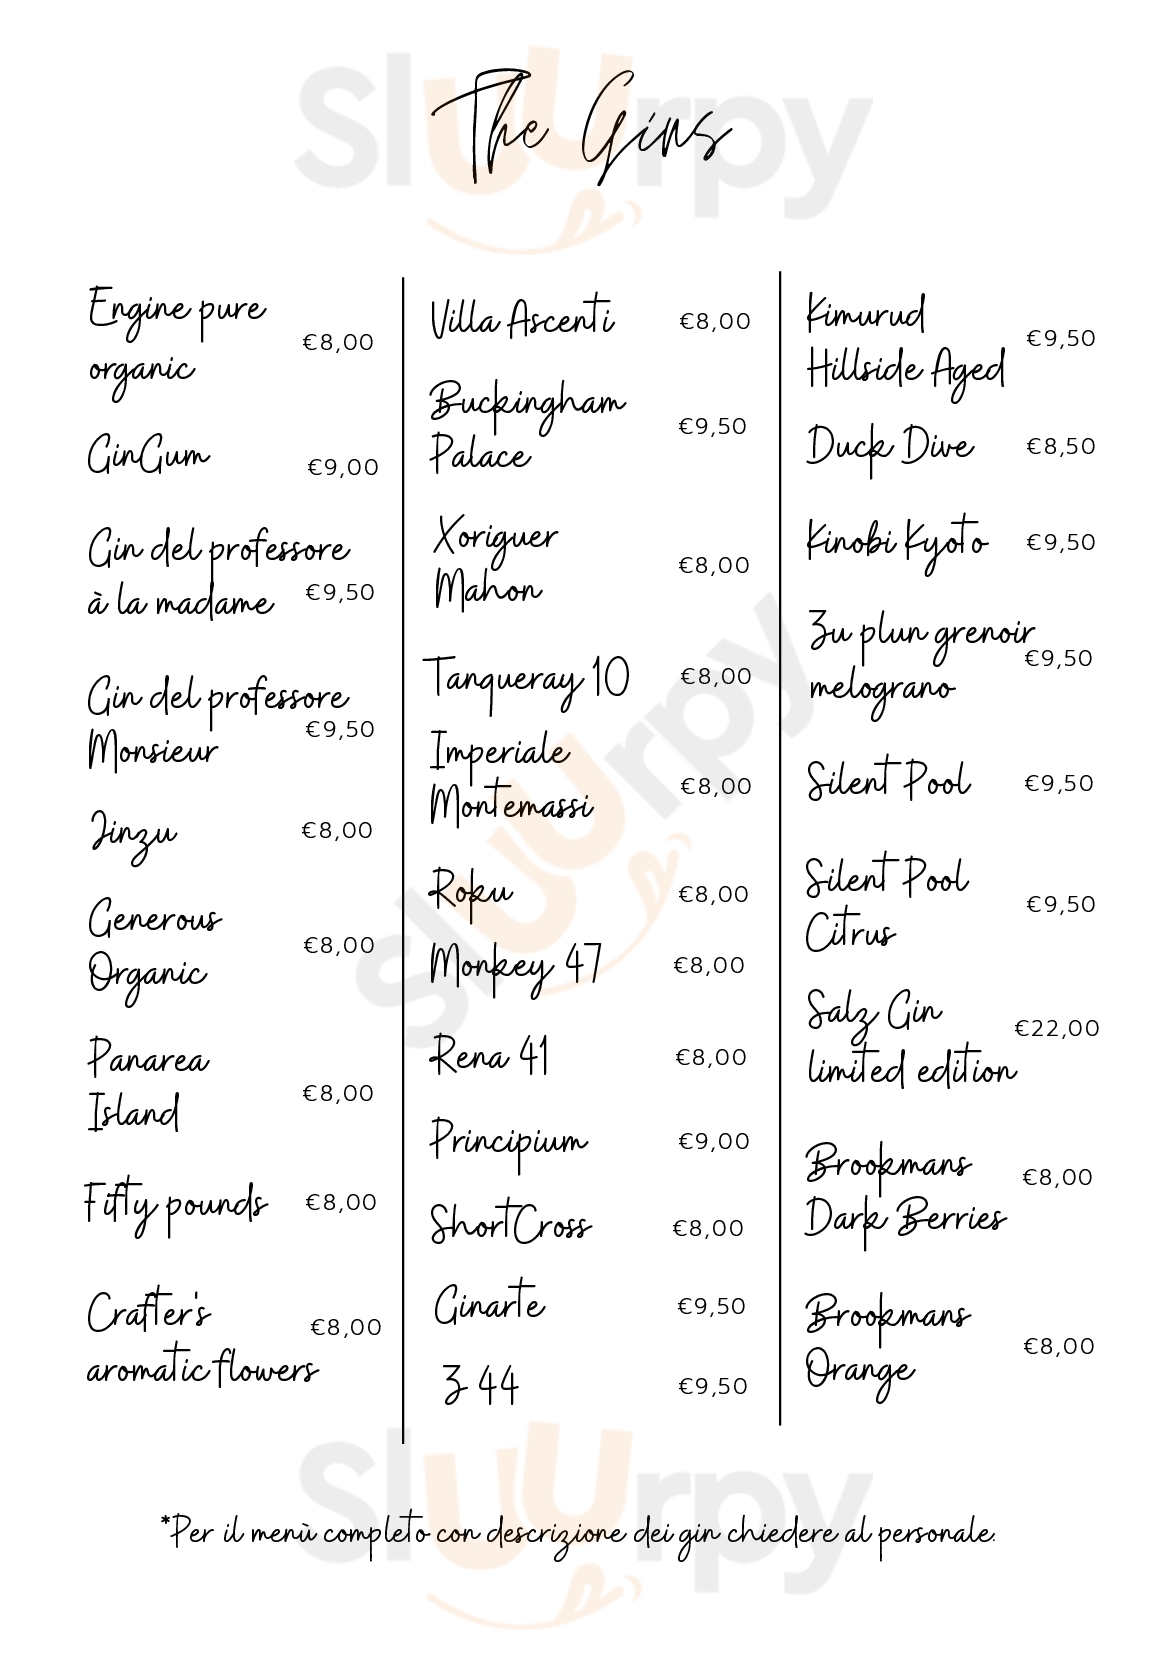 Sluurpy
The Gins
Engine pure
organic
€8,00
GinGum
€9,00
Gin del professore
à la madame
€9,50
Gin del professore
Monsieur
€9,50
Jinzu
€8,00
Generous
Organic
€8,00
Panarea
Island
€8,00
Fifty pounds
€8,00
Crafter's
aromatic flowers
€8,00
Villa Ascenti
€8,00
Buckingham
Palace
€9,50
Xoriguer
Mahon
€8,00
Tanqueray 10
€8,00
Imperiale
Montemassi
€8,00
Roku
€8,00
Monkey 47
€8,00
Rena 41
€8,00
Principium
€9,00
ShortCross
€8,00
Ginarte
€9,50
Z 44
€9,50
Kimurud
Hillside Aged
€9,50
Duck Dive
€8,50
Kinobi Kyoto
€9,50
Zu plun grenoir
melograno
€9,50
Silent Pool
€9,50
Silent Pool
Citrus
€9,50
Salz Gin
limited edition
€22,00
Brookmans
Dark Berries
€8,00
Brookmans
Orange
€8,00
Sluurpy
*Per il menù completo con descrizione dei gin chiedere al personale.
Sluurpy